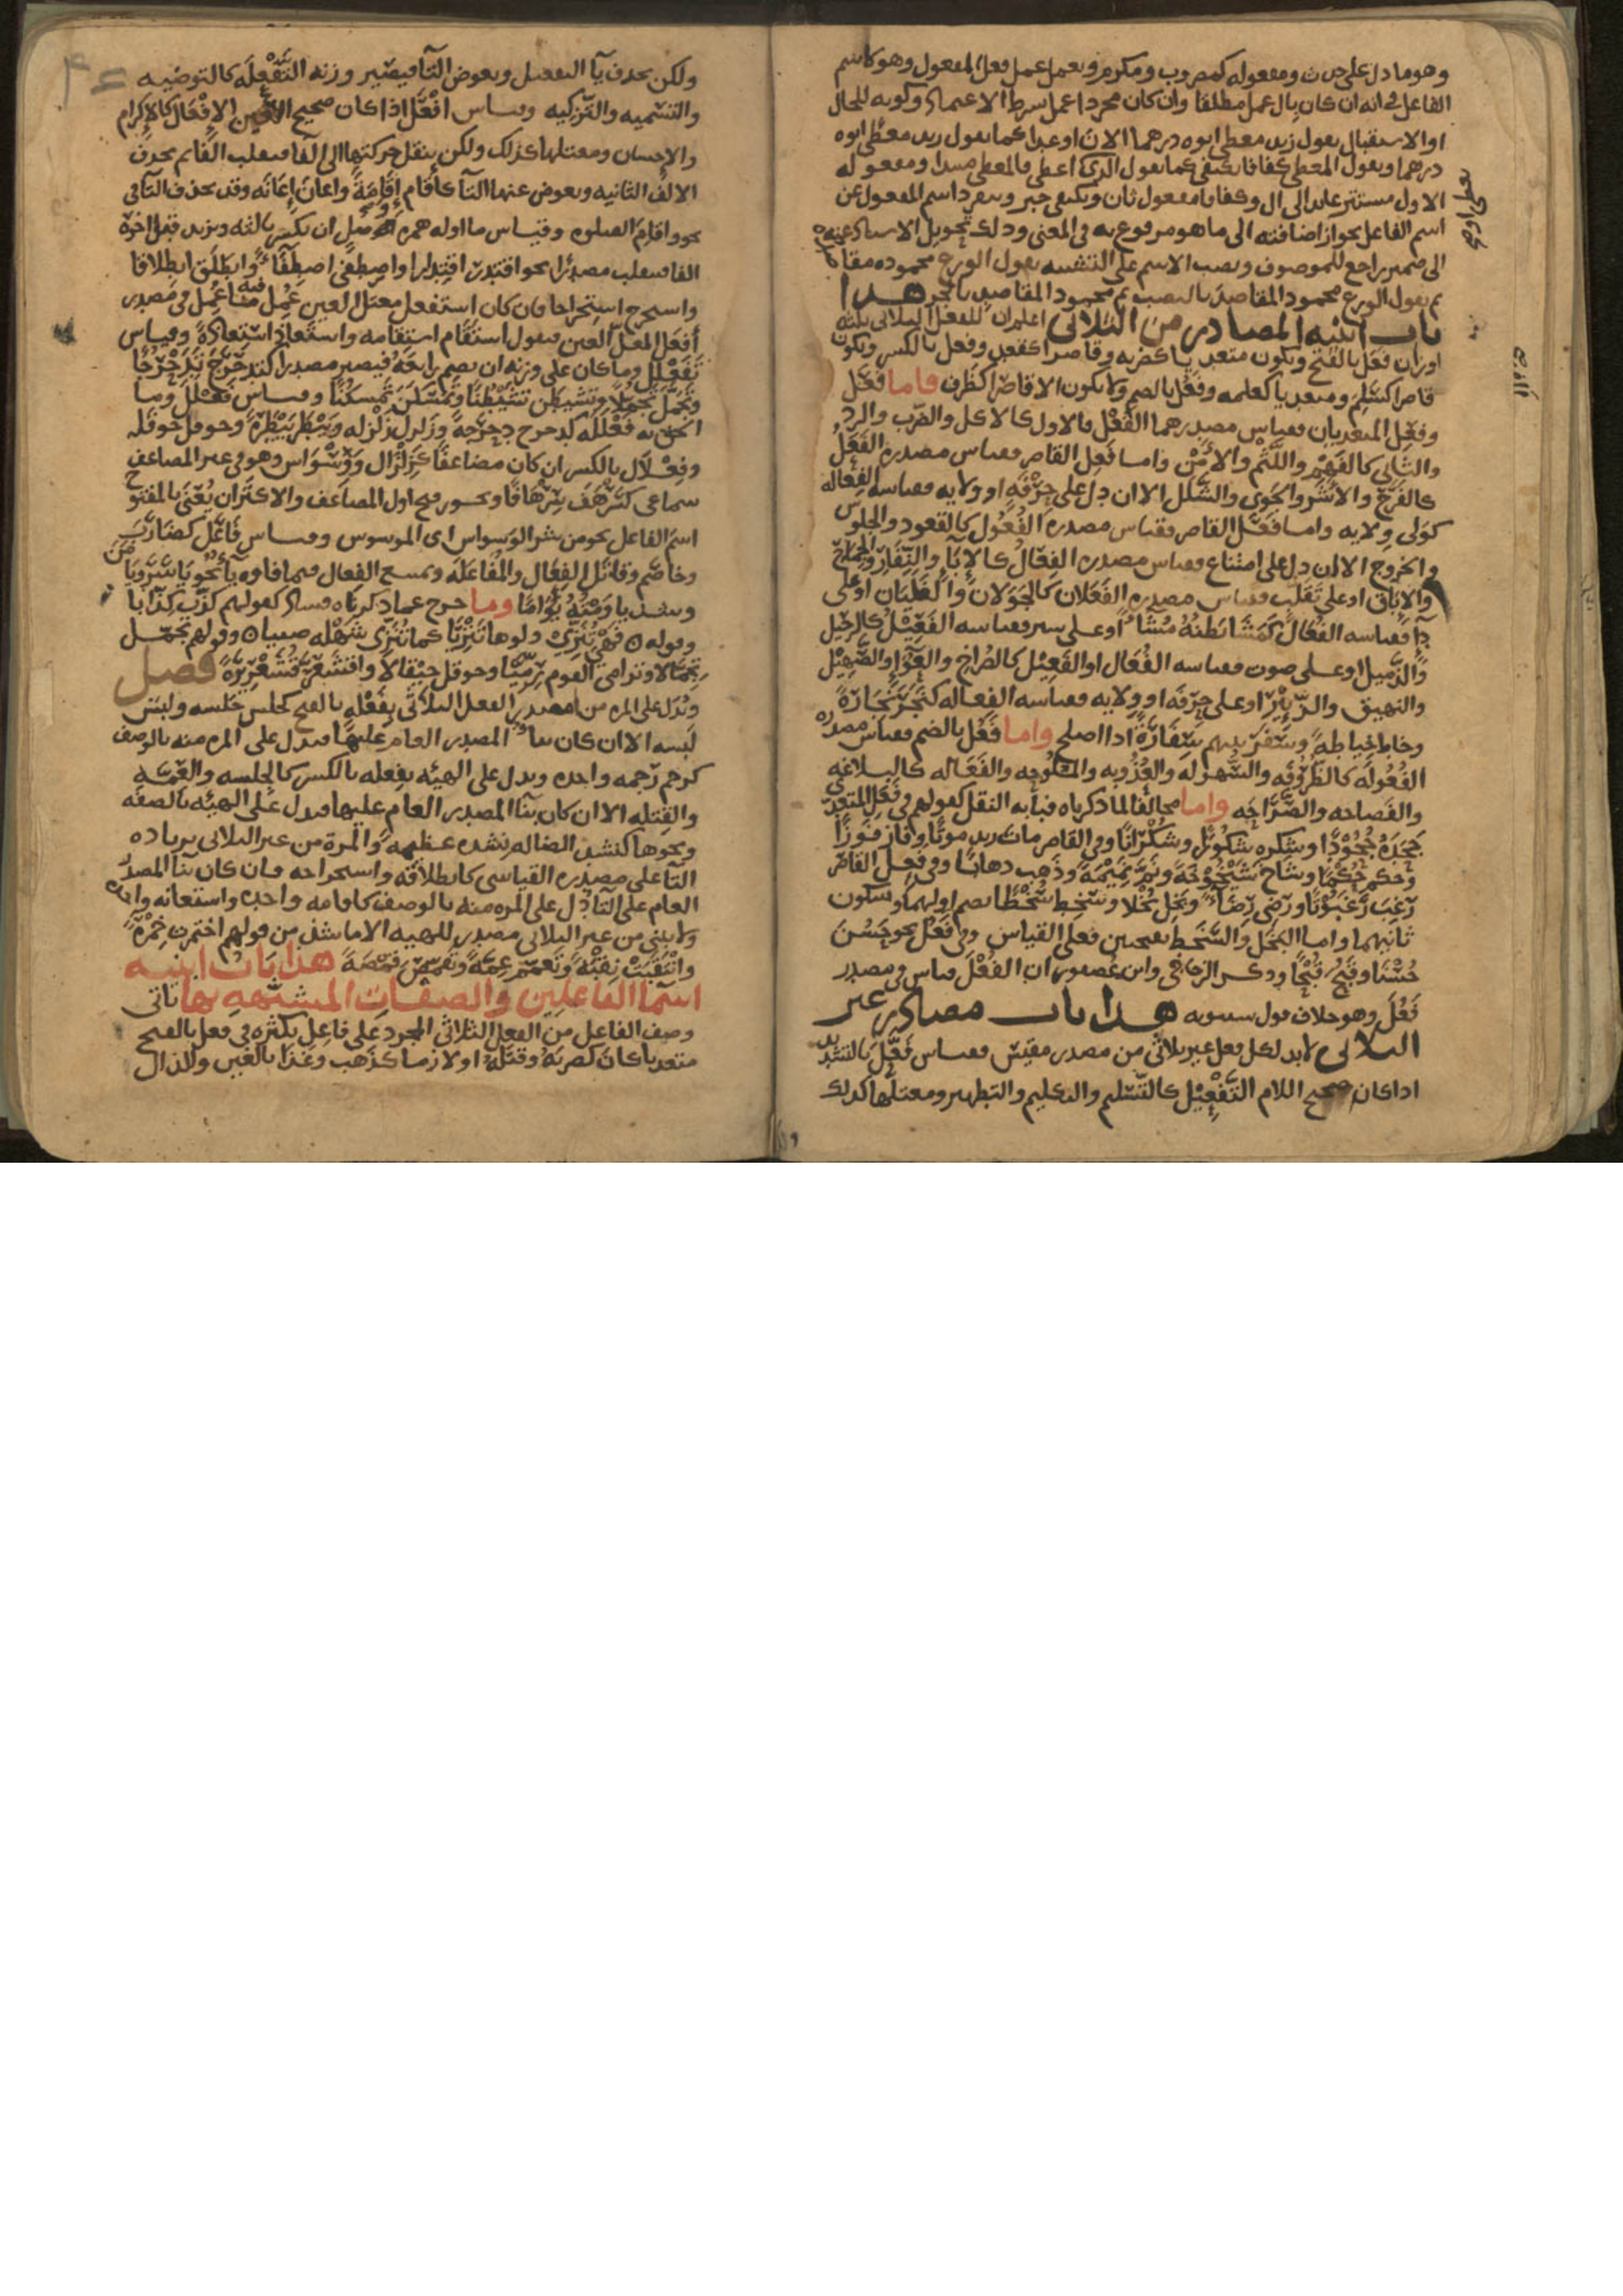 وهو ما دل على حدث ومفعوله كمضروب ومكرم ويعمل عمل فعل المفعول وهو كاسم
الفاعل في انه ان كان بال عمل مطلقا وان كان مجردا عمل بشرط الاعتماد وكونه للحال
او الاستقبال يقول زيد معطى ابوه درهما الان او غدا كما يقول زيد يعطى ابوه
درهما ويقول المعطى كفافا يكتفي كما يقول الذي اعطي فالمعطى مبتدا ومفعوله
الاول مستتر عايد الى ال وكفافا مفعول ثان ويكتفي خبر وينفرد اسم المفعول عن
اسم الفاعل بجواز اضافته الى ما هو مرفوع به في المعنى وذلك بتحويل الاسناد عنه
الى ضمير راجع للموصوف ونصب الاسم على التشبيه يقول الورع محمودة مقاصده
ثم يقول الورع محمود المقاصد بالنصب ثم محمود المقاصد بالجر هذا
باب ابنية المصادر من الثلاثي اعلم ان للفعل الثلاثي ثلثة
اوزان فعل بالفتح ويكون متعديا كضربه وقاصرا كقعد وفعل بالكسر ويكون
قاصرا كسلم ومتعديا كعلمه وفعل بالضم ولا يكون الا قاصرا كظرف فاما فعل
وفعل المتعديان فقياس مصدرهما الفعل فالاول كالاكل والضرب والرد
والثاني كالفهم واللثم والامن واما فعل القاصر فقياس مصدره الفعل
كالفرح والاشر والجوى والشلل الا ان دل على حرفة او ولاية فقياسه الفعالة
كولي ولاية واما فعل القاصر فقياس مصدره الفعول كالقعود والجلوس
والخروج الا ان دل على امتناع فقياس مصدره الفعال كالاباء والنفار والجماح
والاباق او على تقلب فقياس مصدره الفعلان كالجولان والغليان او على
داء فقياسه الفعال كمشا بطنه مشاء او على سير فقياسه الفعيل كالرحيل
والذميل او على صوت فقياسه الفعال او الفعيل كالصراخ والعواء والصهيل
والنهيق والزئير او على حرفة او ولاية فقياسه الفعالة كتجر تجارة
وخاط خياطة وسفر بينهم سفارة اذا اصلح واما فعل بالضم فقياس مصدره
الفعولة كالظروفة والسهولة والعذوبة والملوحة والفعالة كالبلاغة
والفصاحة والصراحة واما مخالفا لما ذكرناه فبابه النقل كقولهم في فعل المتعدي
جحده جحودا وشكره شكورا وشكرانا وفي القاصر مات زيد موتا وفاز فوزا
وحكم حكما وشاخ شيخوخة ونم نميمة وذهب ذهابا وفي فعل القاصر
رغب رغبوتا ورضي رضاء وبخل بخلا وسخط سخطا بضم اولهما وسكون
ثانيهما واما البخل والسخط بفتحتين فعلى القياس وفي فعل نحو حسن
حسنا وقبح قبحا وذكر الزجاجي وابن عصفور ان الفعل قياس في مصدر
فعل وهو خلاف قول سيبويه هذا باب مصادر غير
الثلاثي لابد لكل فعل غير ثلاثي من مصدر مقيس فقياس فعل بالتشديد
اذا كان صحيح اللام التفعيل كالتسليم والتكليم والتطهير ومعتلها كذلك
ولكن يحذف ياء التفعيل ويعوض التاء فيصير وزنه التفعلة كالتوصية
والتسمية والتزكية وقياس افعل اذا كان صحيح العين الافعال كالاكرام
والاحسان ومعتلها كذلك ولكن ينقل حركتها الى الفاء فيقلب الفا ثم يحذف
الالف الثانية ويعوض عنها التاء كاقام اقامة واعان اعانة وقد يحذف التاء في
نحو واقام الصلوة وقياس ما اوله همزة وصل ان يكسر ثالثه ويزيد قبل اخره
الفا فينقلب مصدرا نحو اقتدر اقتدارا واصطفى اصطفاء وانطلق انطلاقا
واستخرج استخراجا فان كان استفعل معتل العين عمل فيه ما عمل في مصدر
افعل المعتل العين فيقول استقام استقامة واستعاذ استعاذة وقياس
تفعلل وما كان على وزنه ان يضم رابعه فيصير مصدرا كتدحرج تدحرجا
وتجمل تجملا وتشيطن تشيطنا وتمسكن تمسكنا وقياس فعلل وما
الحق به فعللة كدحرج دحرجة وزلزل زلزلة وبيطر بيطرة وحوقل حوقلة
وفعلال بالكسر ان كان مضاعفا كزلزال ووسواس وهو في غير المضاعف
سماعي كسرهف سرهافا ويجوز فتح اول المضاعف والاكثر ان يعنى بالمفتوح
اسم الفاعل نحو من شر الوسواس اي الموسوس وقياس فاعل كضارب
وخاصم وقاتل الفعال والمفاعلة ويمتنع الفعال فيما فاوه ياء نحو ياسر ويامن
وشذ ياومته يواما وما خرج عما ذكرناه فشاذ كقولهم كذب كذابا
وقوله ه فهي تنزي دلوها تنزيا كما تنزي شهلة صبيا ه وقولهم تحمل
تحمالا وترامى القوم رميا وحوقل حيقالا واقشعر قشعريرة فصل
ويدل على المرة من مصدر الفعل الثلاثي بفعلة بالفتح كجلس جلسة ولبس
لبسة الا ان كان بناء المصدر العام عليها فيدل على المرة منه بالوصف
كرحم رحمة واحدة ويدل على الهيئة بفعلة بالكسر كالجلسة والعمة
والقتلة الا ان كان بناء المصدر العام عليها فيدل على الهيئة بالصفة
ونحوها كنشد الضالة نشدة عظيمة والمرة من غير الثلاثي بزيادة
التاء على مصدره القياسي كانطلاقة واستخراجة فان كان بناء المصدر
العام على التاء دل على المرة منه بالوصف كاقامة واحدة واستعانة واحدة
ولا يبنى من غير الثلاثي مصدر للهيئة الا ما شذ من قولهم اختمرت خمرة
وانتقبت نقبة وتعمم عمة وتقمص قمصة هذا باب ابنية
اسماء الفاعلين والصفات المشبهة بها ياتي
وصف الفاعل من الفعل الثلاثي المجرد على فاعل بكثرة في فعل بالفتح
متعديا كان كضربه وقتله او لازما كذهب وغذا بالغين والذال